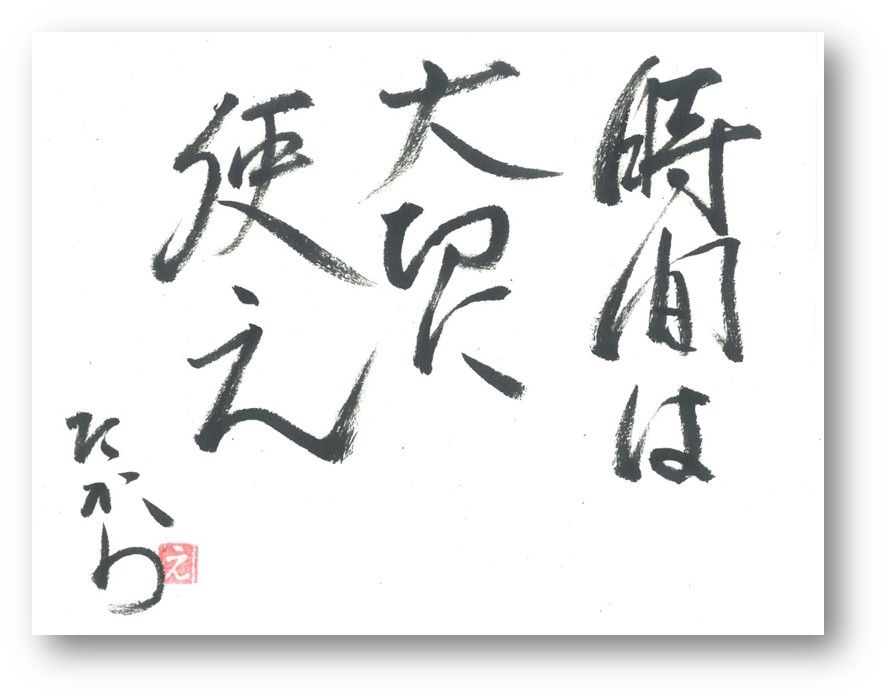 時間は
大切に
使え
たから
え